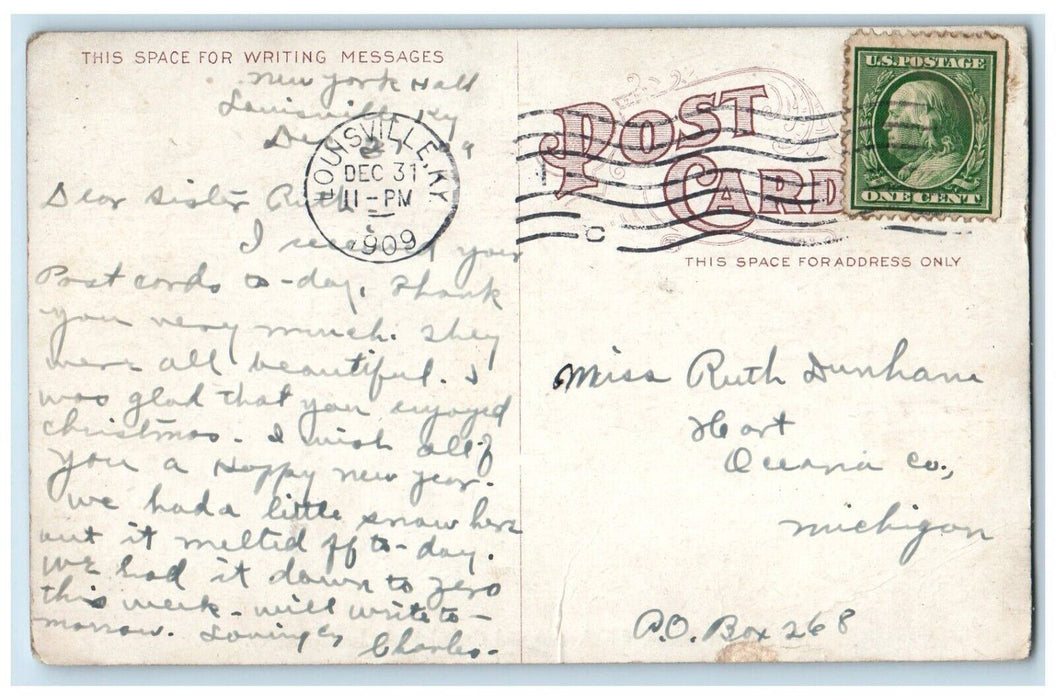 THIS SPACE FOR WRITING MESSAGES
New York Hall
Louisville Ky
Dear Sister Ruth
I received your
Post cards to-day, Thank
you very much. They
were all beautiful. I
was glad that you enjoyed
Christmas - I wish all of
you a Happy New Year.
We had a little snow here
but it melted off to-day.
We had it down to zero
this week - will write to-
morrow. Lovingly
Charles -
LOUISVILLE, KY
DEC 31
11-PM
1909
POST CARD
U.S. POSTAGE
ONE CENT
THIS SPACE FOR ADDRESS ONLY
Miss Ruth Dunham
Hart
Oceana Co.,
Michigan
P.O. Box 268